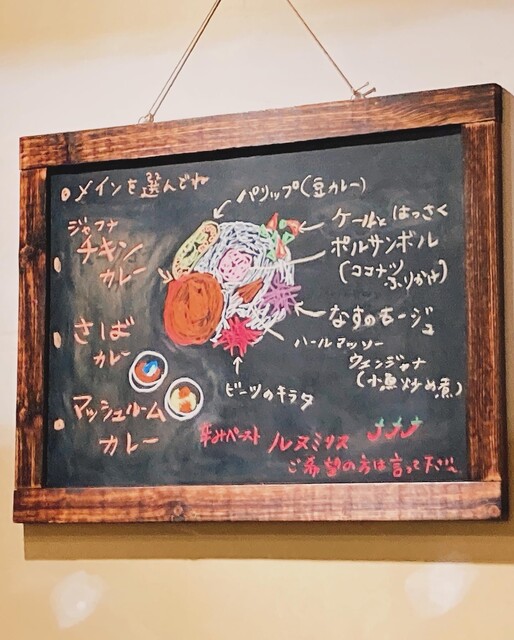 メインを選んでね
ジャフナ
チキン
カレー
さば
カレー
マッシュルーム
カレー
パリップ(豆カレー)
ケールとはっさく
ポルサンボル
(ココナツ
ふりかけ)
なすのモージュ
ハールマッソー
ウェンジャナ
(小魚炒め煮)
ビーツのキラタ
辛みペースト ルヌミリス
ご希望の方は言って下さい